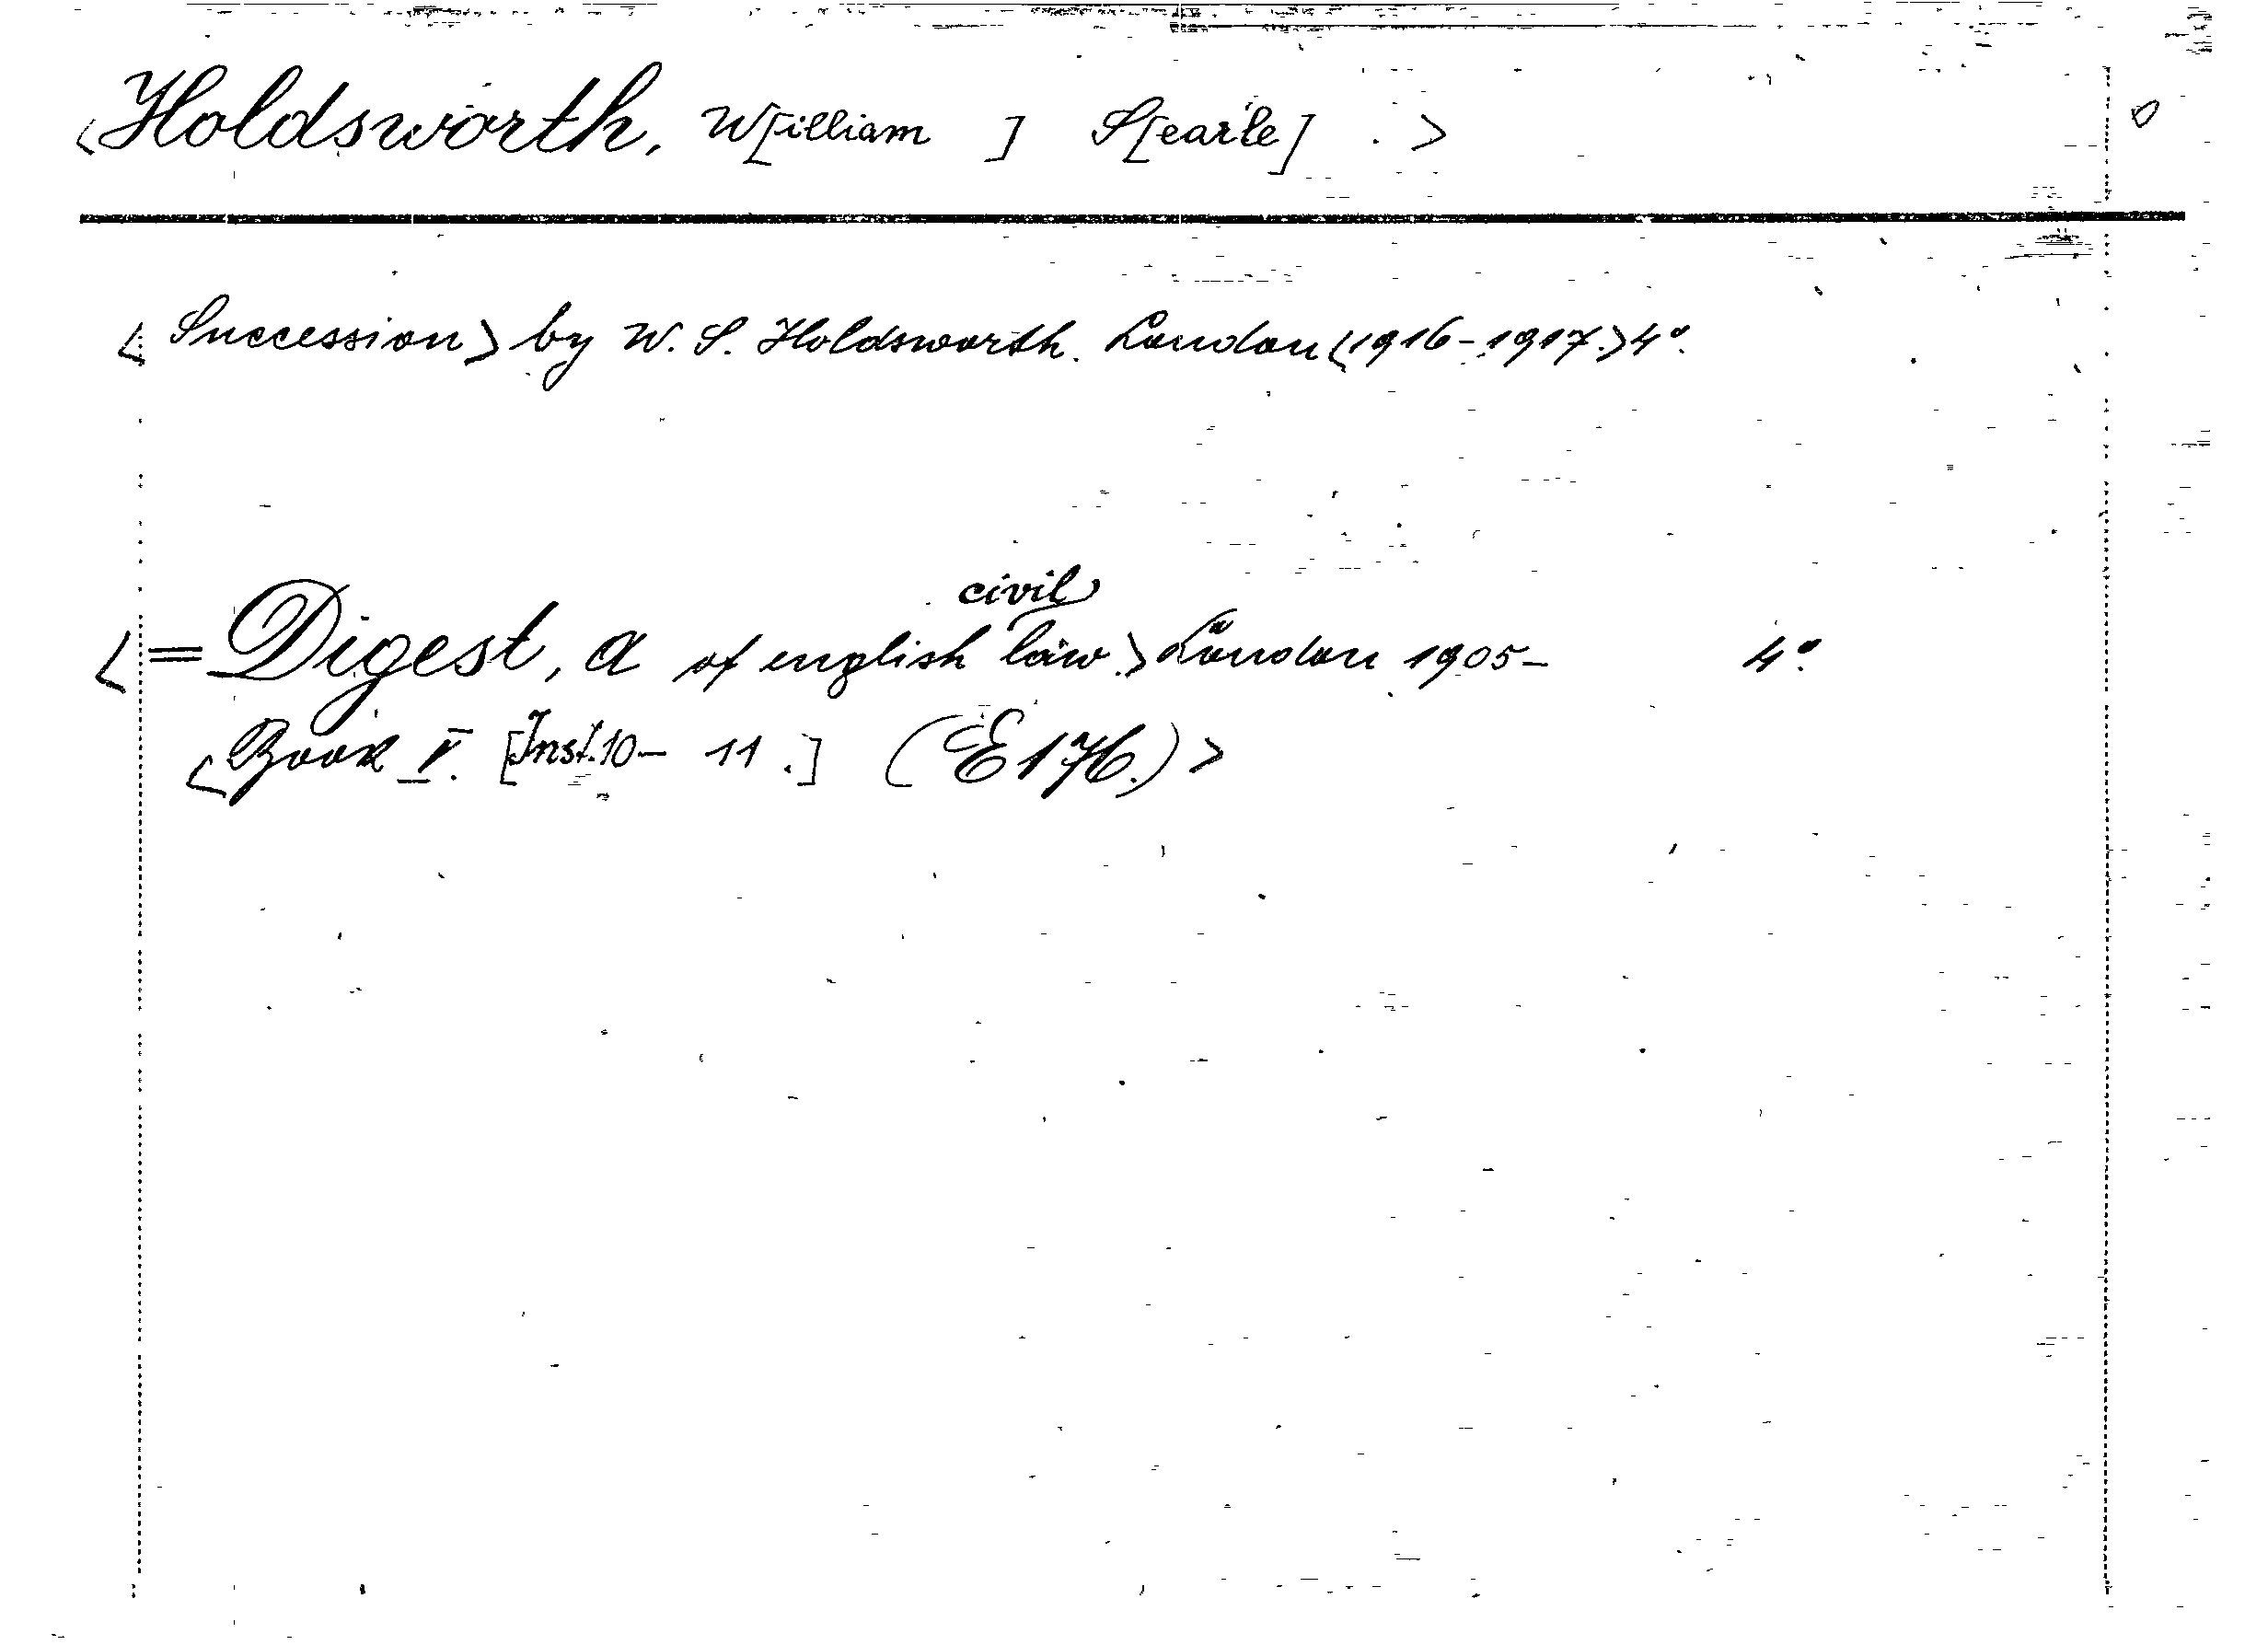 <Holdsworth, W[illiam ] S[earle] . >
<Succession> by W. S. Holdsworth. London <1916-1917.> 4°.
<= Digest, a of english civil law.> London 1905- 4°.
<Book V. [Inst. 10- 11.] (E 176.)>